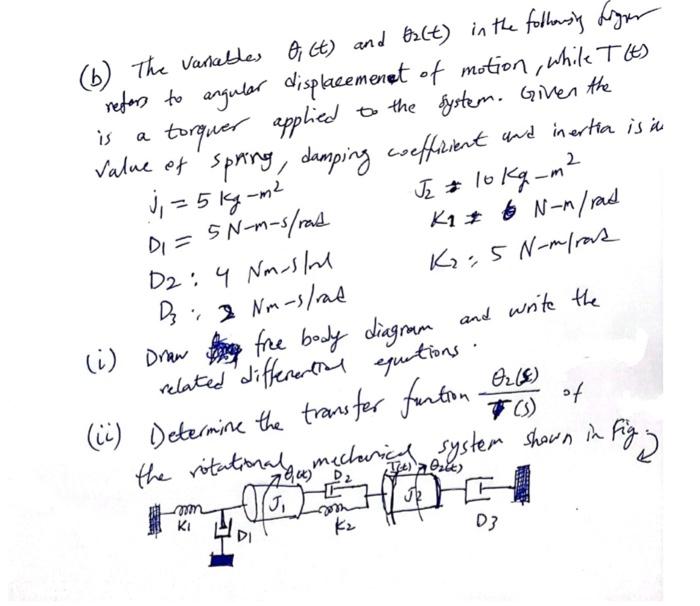 (b) The variables θ₁(t) and θ₂(t) in the following figure
refers to angular displacemenet of motion, while T(t)
is a torquer applied to the system. Given the
value of spring, damping coefficient and inertia is
j₁ = 5 kg-m²
J₂ = 10 kg-m²
D₁ = 5 N-m-s/rad
K₁ = 6 N-m/rad
D₂ : 4 Nm-s/rad
K₂ : 5 N-m/rad
D₃ : Nm-s/rad
(i) Draw free body diagram and write the
related differential equations.
(ii) Determine the transfer funtion θ₂(s)/T(s) of
the rotational mechanical system shown in Fig:
θ₁(t) D₂ T(t) θ₂(t)
K₁ J₁ J₂
D₁ K₂ D₃